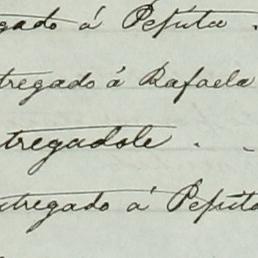 egado á Pepita .
tregado á Rafaela
tregadole . -
ntregado á Pepita